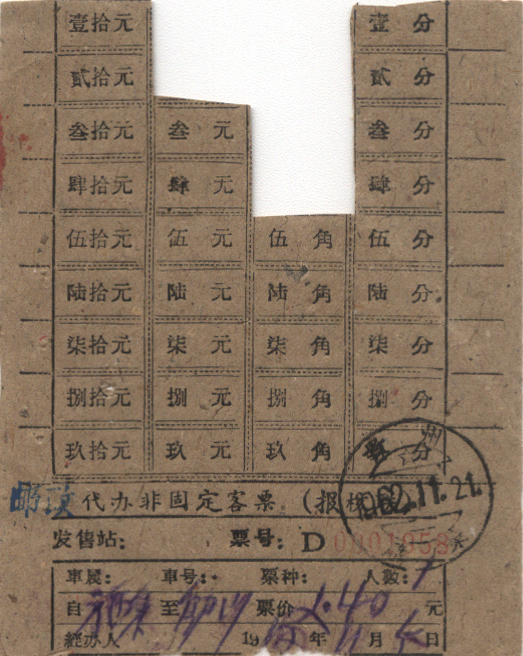 壹拾元 壹 分
贰拾元 贰 分
叁拾元 叁 元 叁 分
肆拾元 肆 元 肆 分
伍拾元 伍 元 伍 角 伍 分
陆拾元 陆 元 陆 角 陆 分
柒拾元 柒 元 柒 角 柒 分
捌拾元 捌 元 捌 角 捌 分
玖拾元 玖 元 玖 角 玖 分
代办非固定客票 (报
州
1962.11.21.
发售站: 票号: D 0001958
车属: 车号: 票种: 人数: 1
自 至 票价 元
经办人 19 年 11 月 日